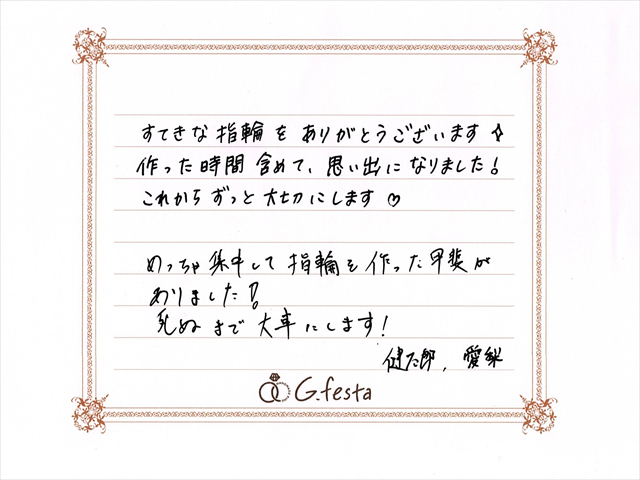 すてきな指輪をありがとうございます☆
作った時間含めて、思い出になりました！
これからずっと大切にします♡
めっちゃ集中して指輪を作った甲斐が
ありました！
死ぬまで大事にします！
健太郎、愛梨
G.festa